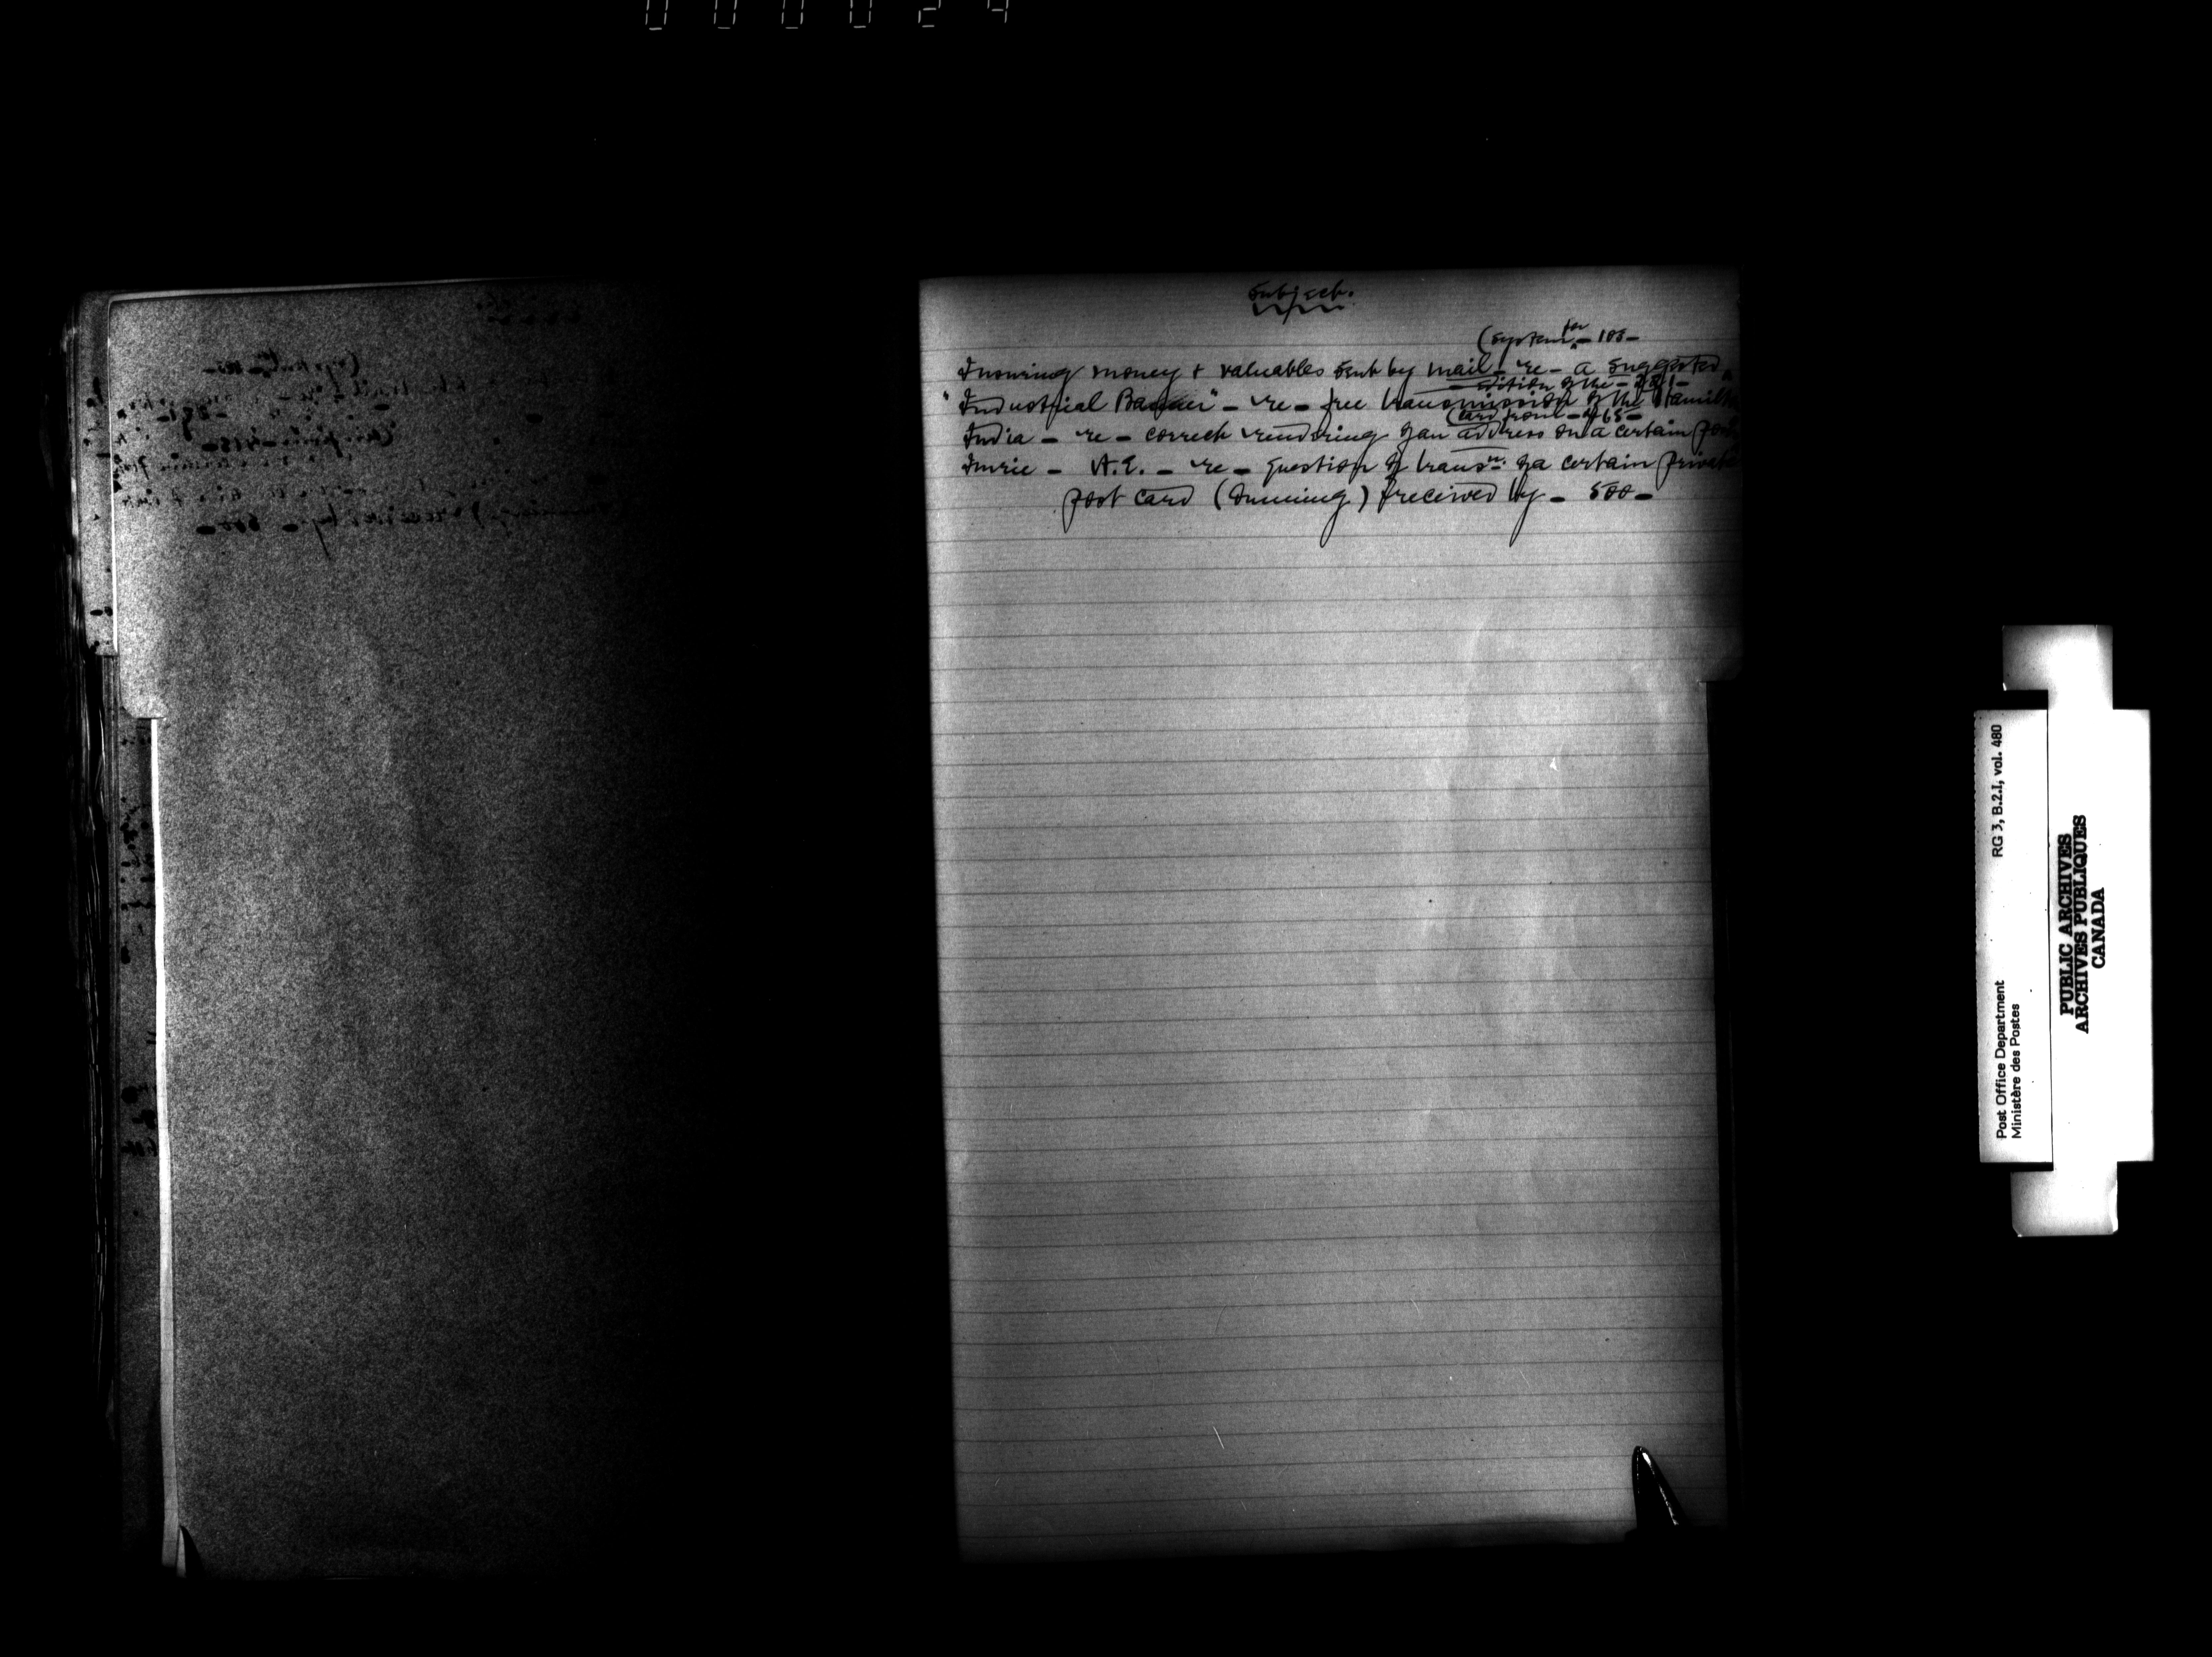 000024
Subject.
(System for - 105 -
Insuring money & valuables sent by mail - re - a suggested
- edition of the - 291 -
"Industrial Banner" - re - free transmission of the Hamilton
(card from - 465 -
India - re - correct rendering of an address on a certain post
Imrie - A.E. - re - question of transn. of a certain private
post card (dunning) received by - 500 -
Post Office Department RG 3, B.2.I, vol. 480
Ministère des Postes
PUBLIC ARCHIVES
ARCHIVES PUBLIQUES
CANADA